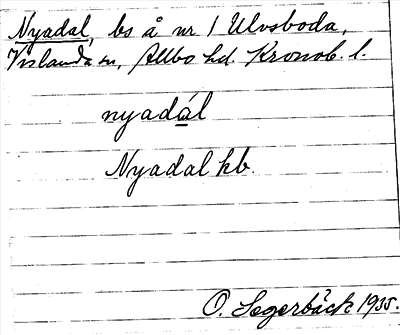 Nyadal, bs å nr 1 Ulvsboda,
Vislanda sn, Allbo hd. Kronob. l.
nyadál
Nyadal kb.
O. Segerbäck 1935.